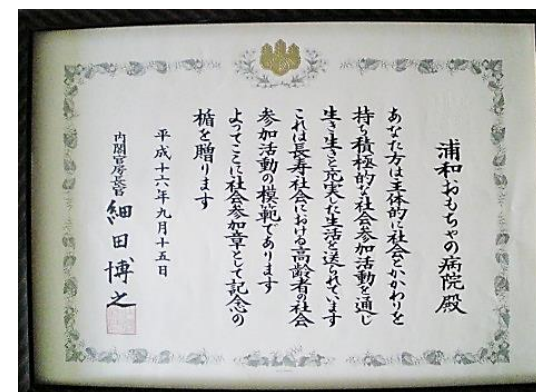 浦和おもちゃの病院殿
あなた方は主体的に社会とかかわりを
持ち積極的な社会参加活動を通じ
生き生きと充実した生活を送られています
これは長寿社会における高齢者の社会
参加活動の模範であります
よってここに社会参加章として記念の
楯を贈ります
平成十六年九月十五日
内閣官房長官 細田博之